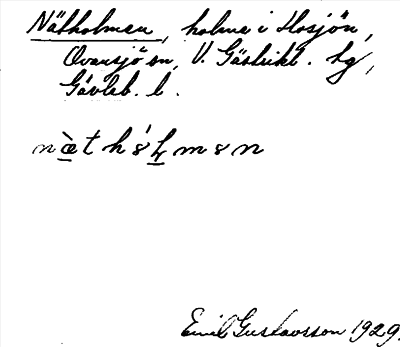 Nätholmen, holme i Hosjön,
Ovansjö sn, V. Gästrikl. hg,
Gävleb. l.
næ̀t h ó l m ə n
Emil Gustavsson 1929.